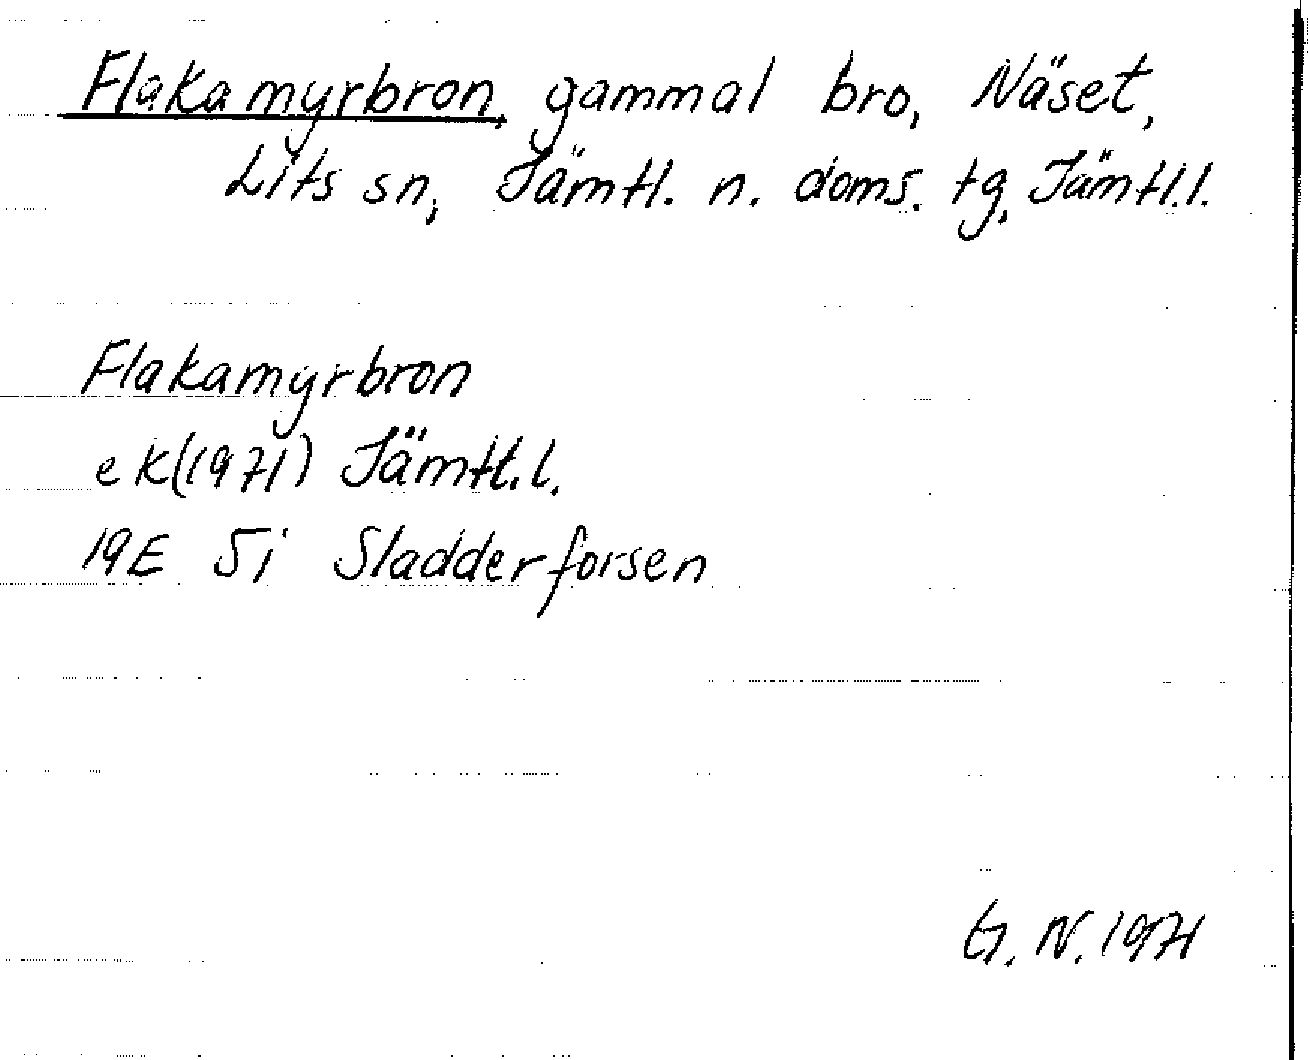 Flakamyrbron, gammal bro, Näset,
Lits sn, Jämtl. n. doms. tg, Jämtl.l.
Flakamyrbron
ek(1971) Jämtl.l.
19E 5i Sladderforsen
G. N. 1971